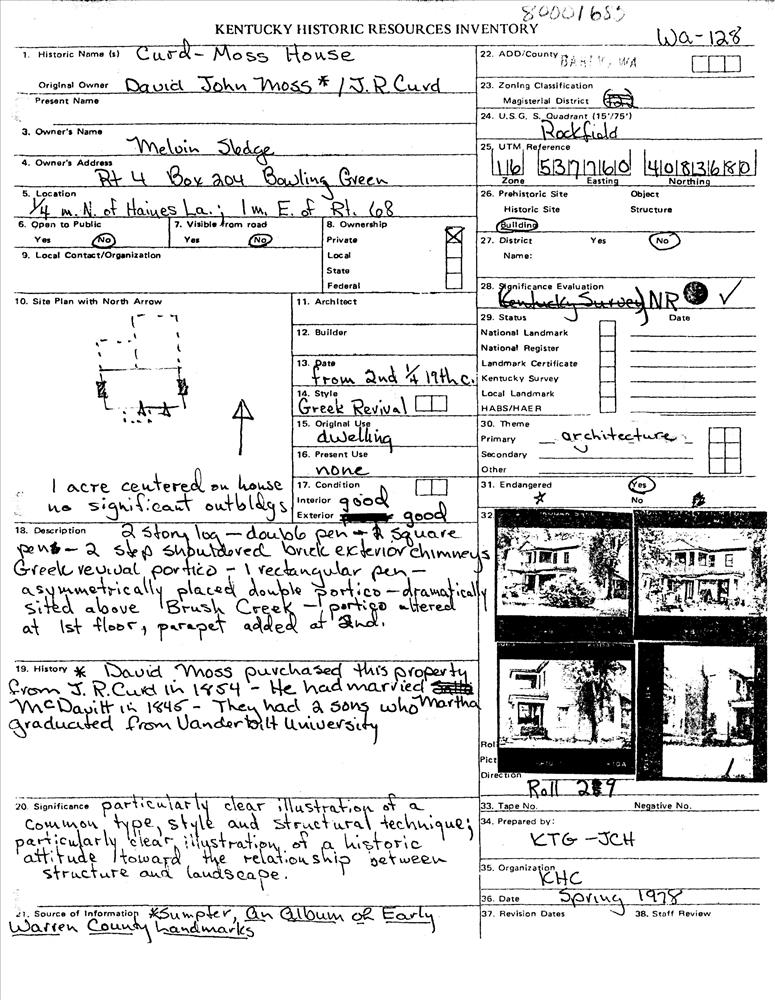 80001655
KENTUCKY HISTORIC RESOURCES INVENTORY
Wa-128
1. Historic Name (s) Curd-Moss House
Original Owner David John Moss * / J.R. Curd
Present Name
3. Owner's Name
Melvin Sledge
4. Owner's Address
Rt 4 Box 204 Bowling Green
5. Location
1/4 m. N. of Haines La.; 1 m. E. of Rt. 68
6. Open to Public
Yes No
7. Visible from road
Yes No
8. Ownership
Private
Local
State
Federal
9. Local Contact/Organization
10. Site Plan with North Arrow
1 acre centered on house
no significant outbldgs
11. Architect
12. Builder
13. Date
from 2nd 1/4 19th c.
14. Style
Greek Revival
15. Original Use
dwelling
16. Present Use
none
17. Condition
Interior good
Exterior good
18. Description 2 story log - double pen - 2 square
pens - 2 step shouldered brick exterior chimneys
Greek revival portico - 1 rectangular pen -
asymmetrically placed double portico - dramatically
sited above Brush Creek - portico altered
at 1st floor, parapet added at 2nd.
19. History * David Moss purchased this property
from J.R. Curd in 1854 - He had married Martha
McDavitt in 1845 - They had 2 sons who
graduated from Vanderbilt University
20. Significance particularly clear illustration of a
common type, style and structural technique;
particularly clear illustration of a historic
attitude toward the relationship between
structure and landscape.
21. Source of Information *Sumpter, An Album of Early
Warren County Landmarks
22. ADD/County WA
23. Zoning Classification
Magisterial District
24. U.S.G.S. Quadrant (15'/75')
Rockfield
25. UTM Reference
16 537760 4083680
Zone Easting Northing
26. Prehistoric Site Object
Historic Site Structure
Building
27. District Yes No
Name:
28. Significance Evaluation
Kentucky Survey NR ✓
29. Status Date
National Landmark
National Register
Landmark Certificate
Kentucky Survey
Local Landmark
HABS/HAER
30. Theme
Primary architecture
Secondary
Other
31. Endangered Yes
No
32
Roll
Pict
Direction
Roll 289
33. Tape No. Negative No.
34. Prepared by:
KTG - JCH
35. Organization
KHC
36. Date Spring 1978
37. Revision Dates 38. Staff Review